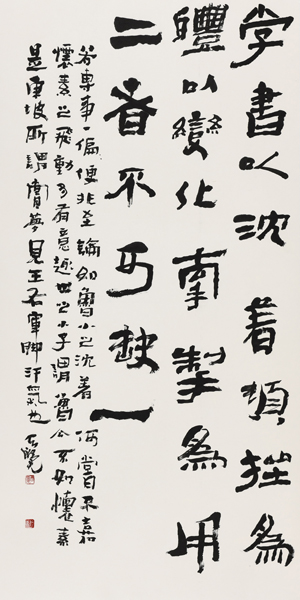 学書以沈着頓挫為
體以變化牽掣為用
二者不可缺一
若專事一偏便非至論如魯公之沈着何嘗不嘉
懷素之飛動多有意趣世之小子謂魯公不如懷素
是東坡所謂嘗夢見王右軍脚汗氣也